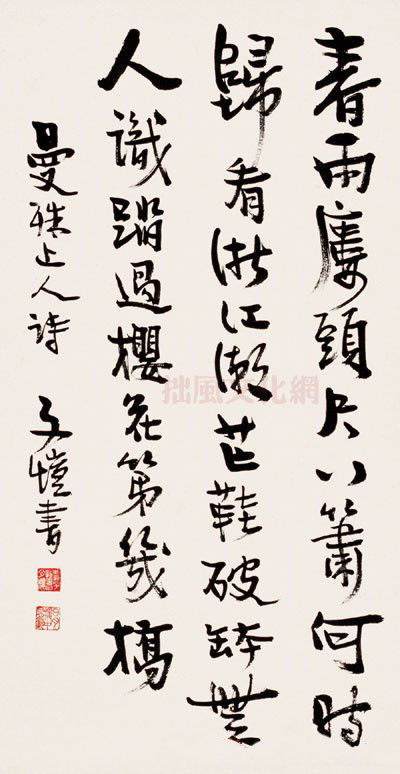 春雨廔頭尺八簫何時
歸看浙江潮芒鞋破缽無
人識踏過櫻花第幾橋
曼殊上人詩
子愷書
拙風文化網